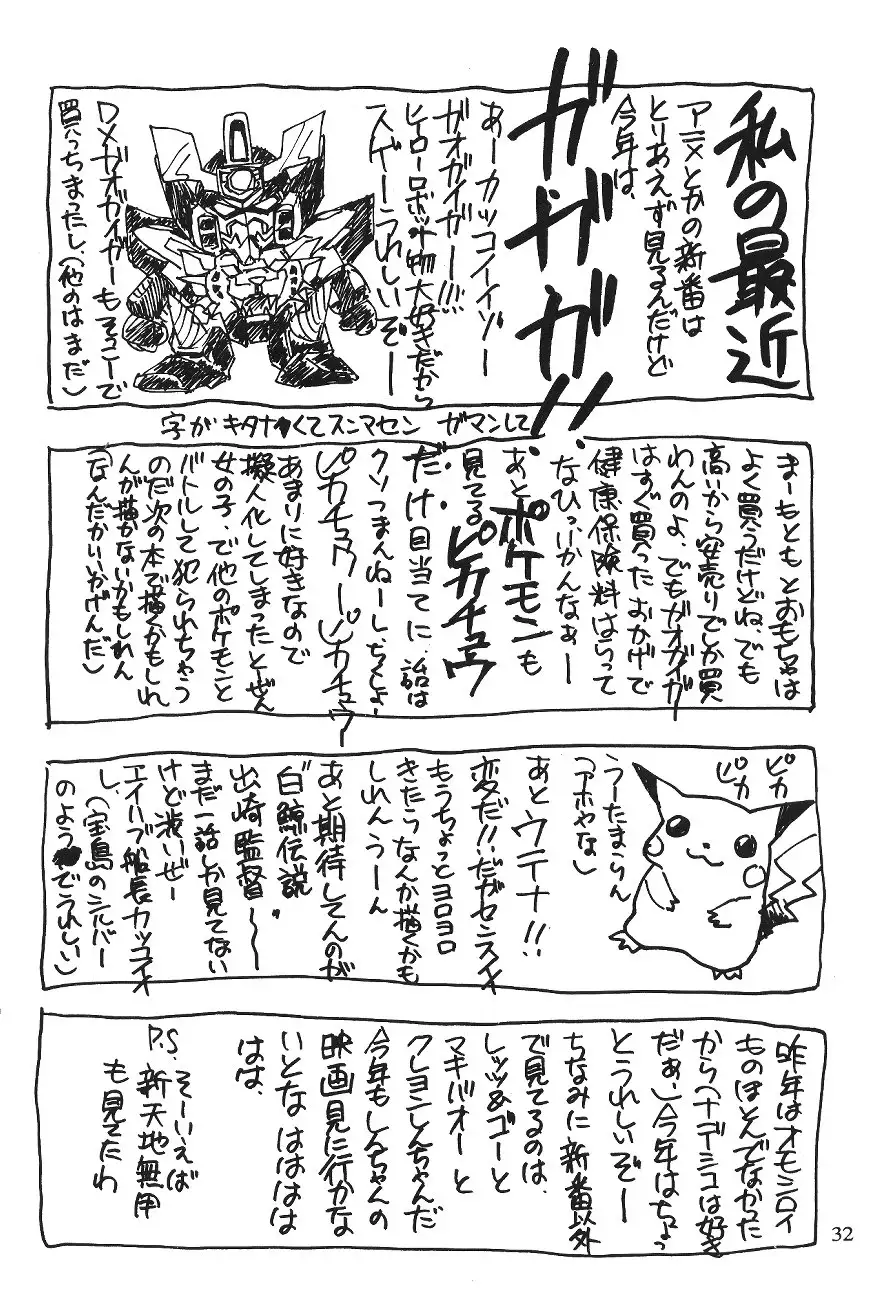 私の最近
今年は、
とりあえず見るんだけど
アニメとかの新番は
ガガガ!!
あーカッコイイゾー
ガオガイガー!!!
ヒーローロボット物大好きだから
スゲーうれしいぞー
DXガオガイガーもそっこーで
買っちまったし、(他のはまだ)
字がキタナくてスンマセン ガマンして
まーもともとおもちゃは
よく買うだけどね、でも
高いから安売りでしか買
わんのよ、でもガオガイガー
はすぐ買ったおかげで
健康保険料はらって
なひっ、いかんなぁー
あとポケモンも
見てるピカチュウ
だけ目当てに、話は
クソつまんねーし、ちくしょー
ピカチュウーピカチュウー
あまりに好きなので
擬人化してしまったとーぜん
女の子、で他のポケモンと
バトルして犯られちゃう
のだ次の本で描くかもしれ
んが描かないかもしれん
(なんだかいいかげんだ)
ピカ
ピカ
うーたまらん
(アホやな)
あとウテナ!!
変だ!!だがセンスイイ
もうちょっとヨロヨロ
きたらなんか描くかも
しれんうーん
あと期待してんのが
"白鯨伝説"
出崎監督〜〜
まだ一話しか見てない
けど渋いぜー
エイハブ船長カッコイイ
し、(宝島のシルバー
のようでうれしい)
昨年はオモシロイ
ものほとんでなかった
から(ナデシコは好き
だぁー)今年はちょっ
とうれしいぞー
ちなみに新番以外
で見てるのは、
レッツ&ゴーと
マキバオーと
クレヨンしんちゃんだ
今年もしんちゃんの
映画見に行かな
いとな はははは
はは、
P.S. そーいえば
新天地無用
も見てたわ
32